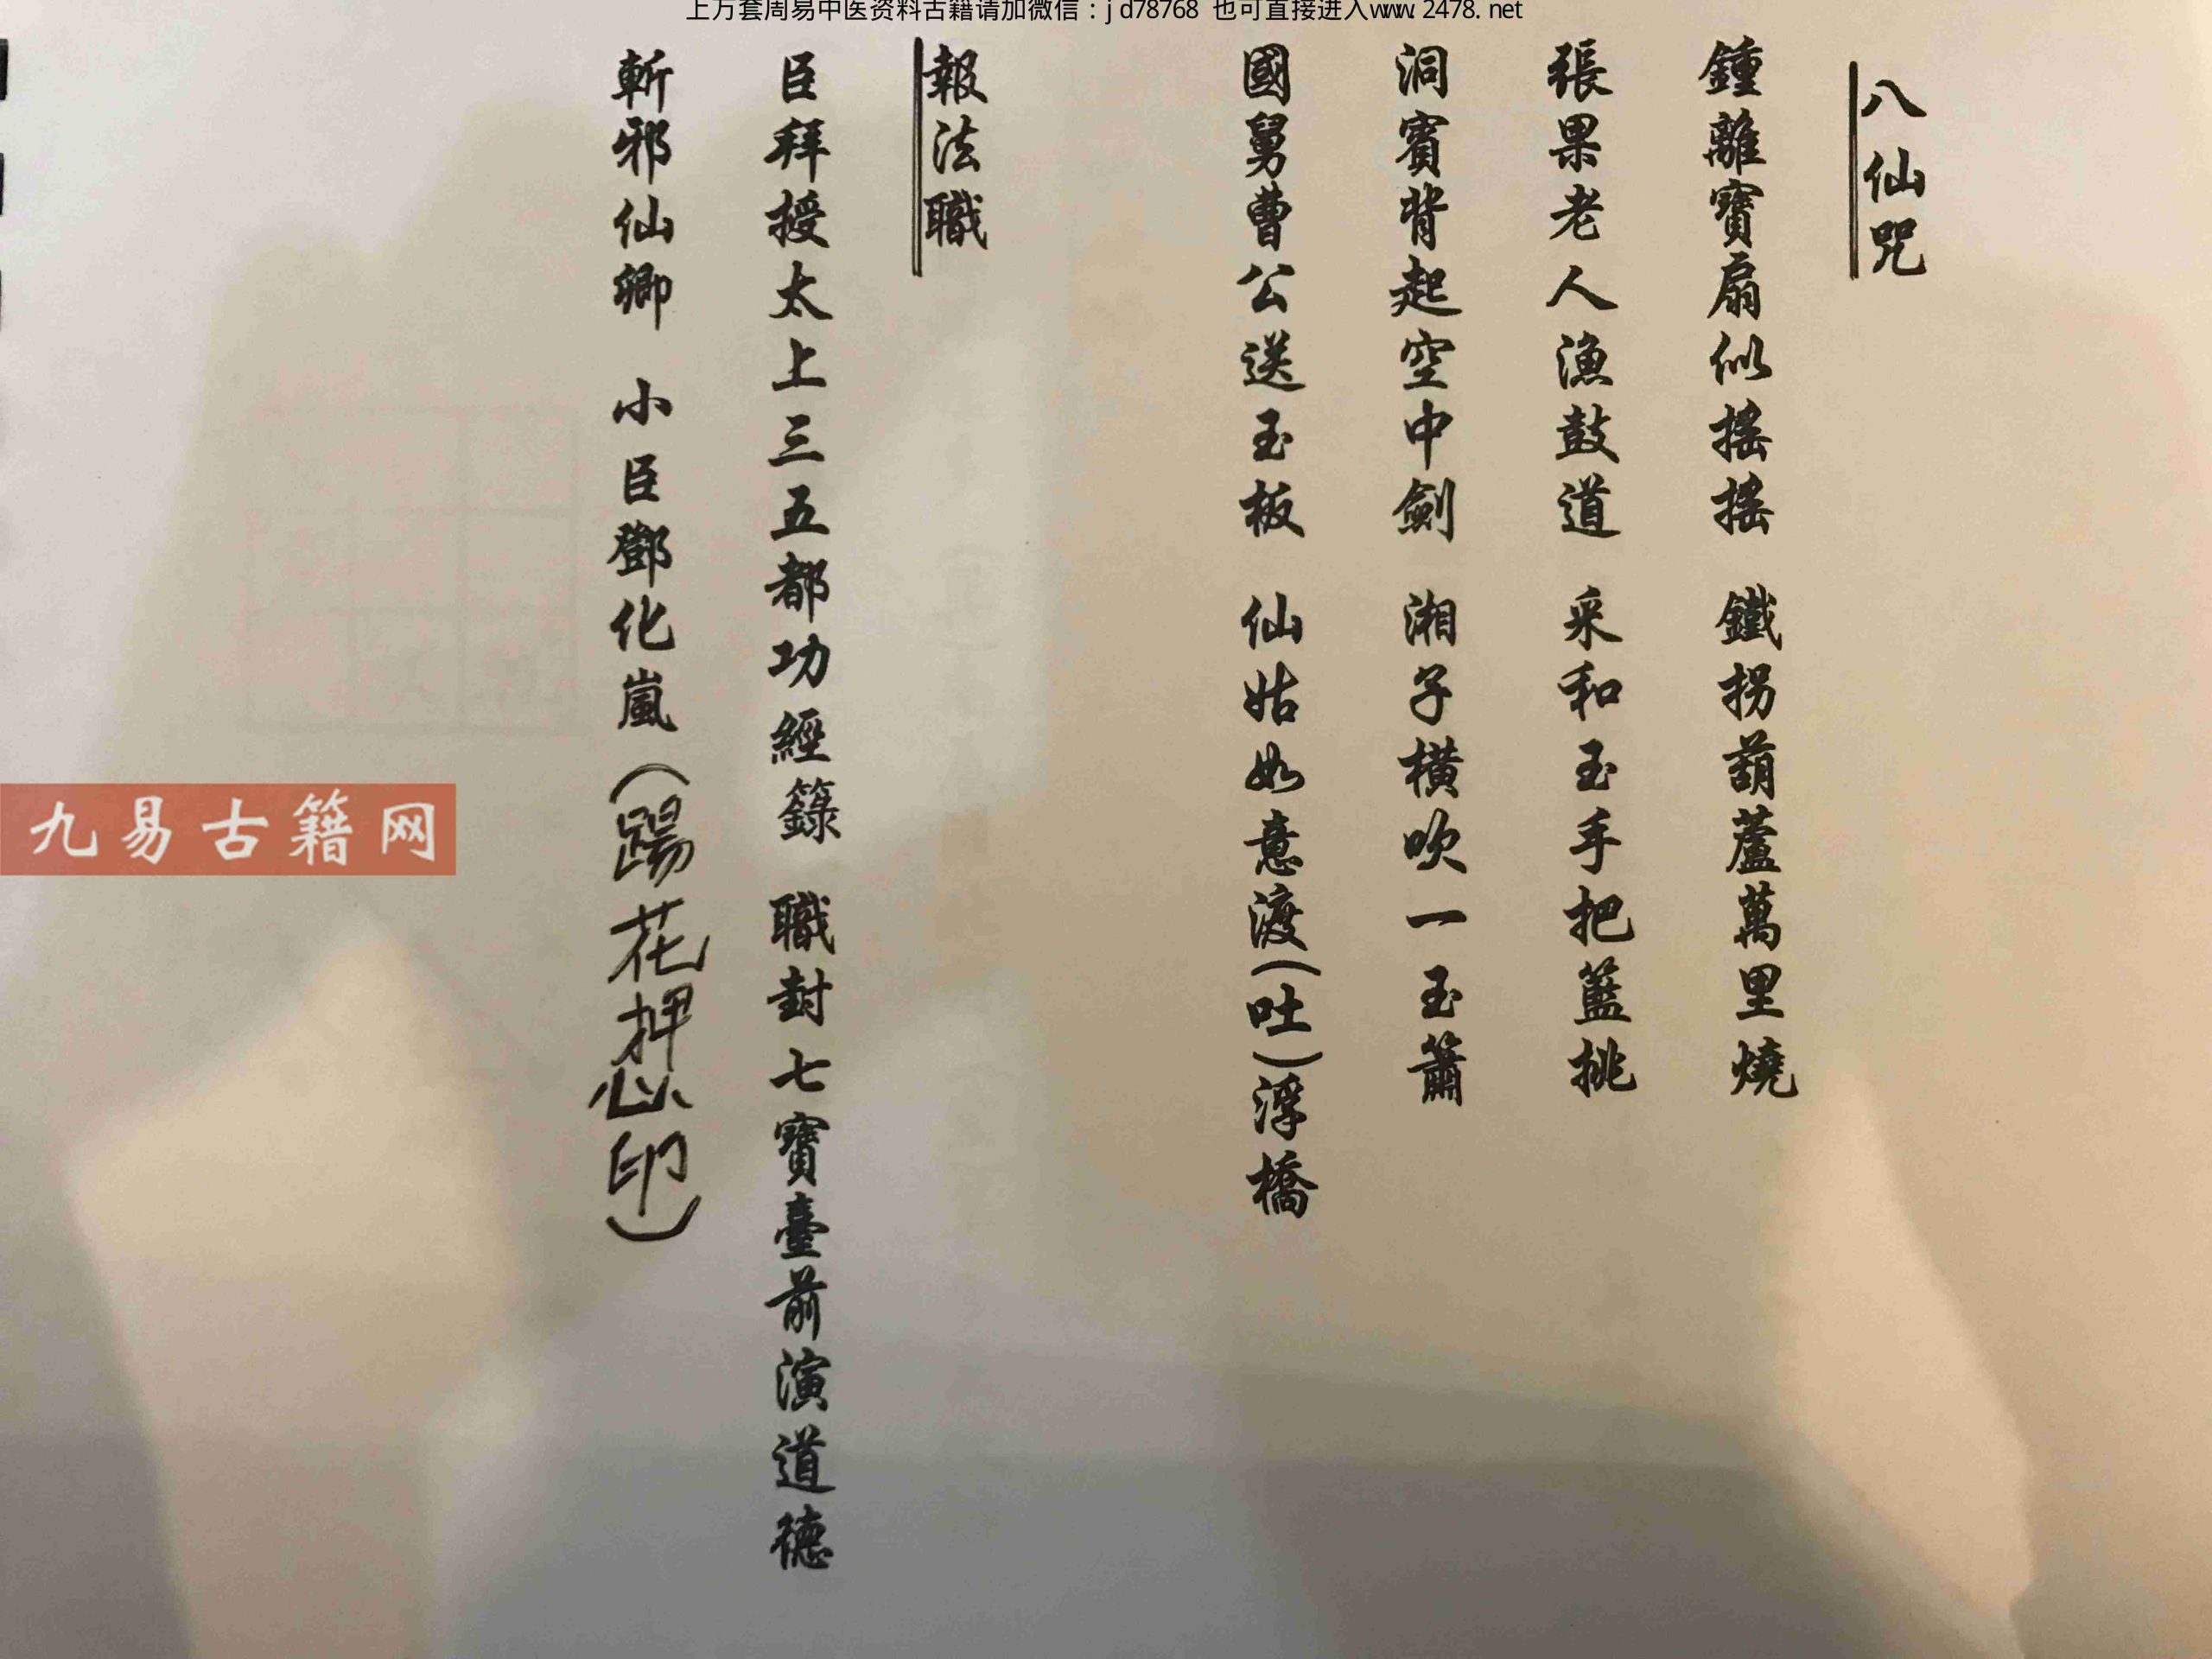 上万套周易中医资料古籍请加微信：jd78768 也可直接进入www.2478.net
八仙咒
鍾離寶扇似搖搖 鐵拐葫蘆萬里燒
張果老人漁鼓道 采和玉手把籃挑
洞賓背起空中劍 湘子橫吹一玉簫
國舅曹公送玉板 仙姑如意渡(吐)浮橋
報法職
臣拜授太上三五都功經籙 職封七寶臺前演道德
斬邪仙卿 小臣鄧化嵐(踢花押心印)
九易古籍网